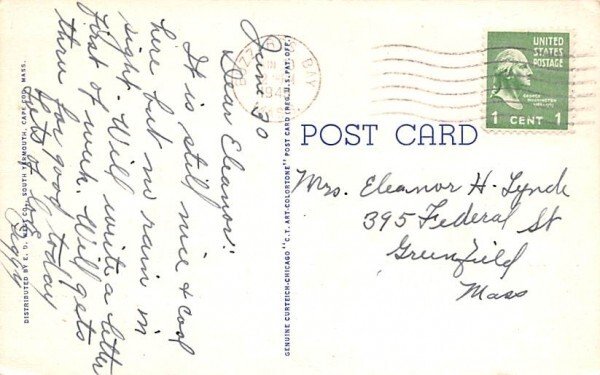 June 30
Dear Eleanor:
It is still nice & cool
here but no rain in
sight. Will write a letter
first of week. Will get
thru for good today
Lots of love
DISTRIBUTED BY E. D. WEST CO., SOUTH YARMOUTH, CAPE COD, MASS.
GENUINE CURTEICH-CHICAGO "C.T. ART-COLORTONE" POST CARD (REG. U.S. PAT. OFF.)
BUZZARDS BAY
POST CARD
UNITED
STATES
POSTAGE
GEORGE
WASHINGTON
1 CENT 1
Mrs. Eleanor H. Lynde
395 Federal St
Greenfield
Mass